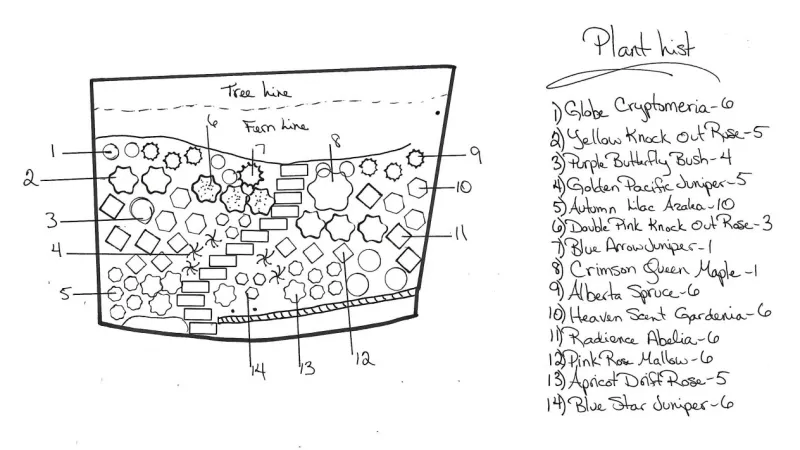 Plant List
Tree Line
Fern Line
6
7
8
1
9
2
10
3
11
4
5
14
13
12
1) Globe Cryptomeria-6
2) Yellow Knock Out Rose-5
3) Purple Butterfly Bush-4
4) Golden Pacific Juniper-5
5) Autumn Lilac Azalea-10
6) Double Pink Knock Out Rose-3
7) Blue Arrow Juniper-1
8) Crimson Queen Maple-1
9) Alberta Spruce-6
10) Heaven Scent Gardenia-6
11) Radience Abelia-6
12) Pink Rose Mallow-6
13) Apricot Drift Rose-5
14) Blue Star Juniper-6